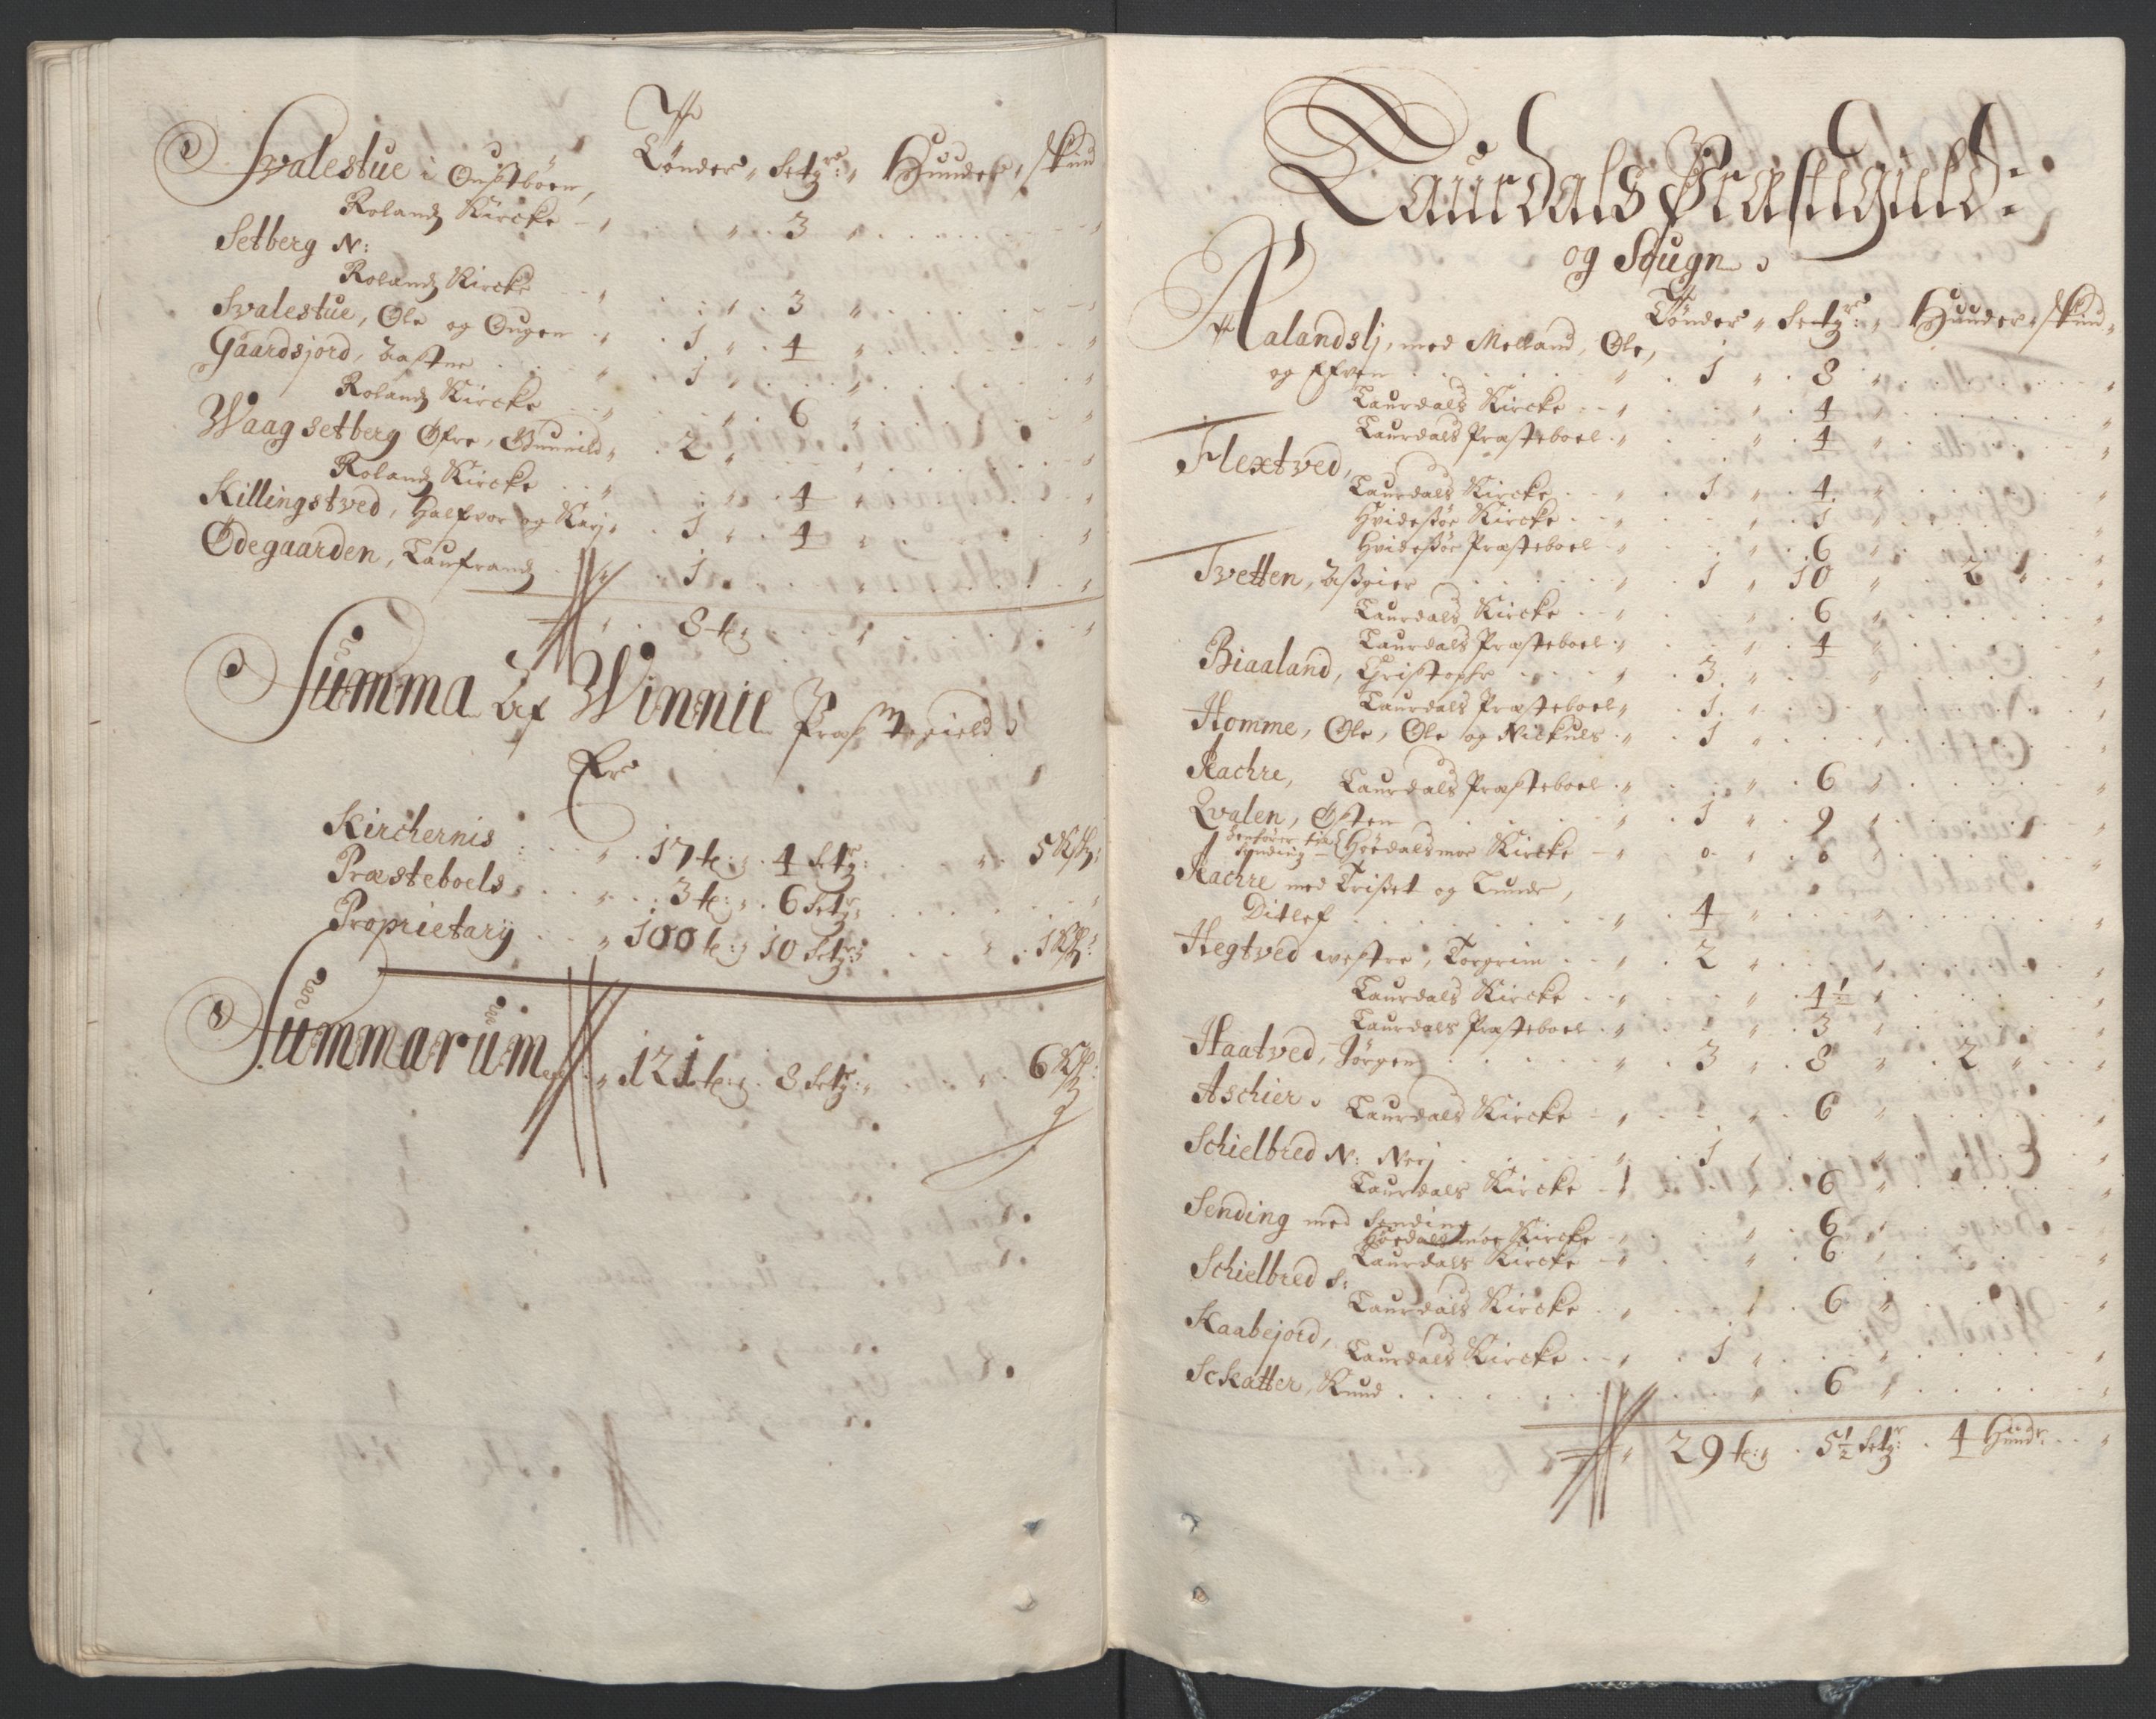 Tønder, setgr: Hunder, skind
Svalestue i Oustbøen,
Rolandz Kircke 3
Setberg N:
Rolandz Kircke 3
Svalestue, Ole og Ougen 1 4
Gaardsjord, Aasne 1
Rolandz Kircke 6
Waagsetberg Øfre, Gunnild 2
Rolandz Kircke 4
Killingstved, Halfvor og Karj 1 4
Ødegaarden, Laufrandz 1
8 t:
Summa Af Winnie Præstegield
Er
Kirchernis 17 t: 4 setgr: 5
Præsteboels 3 t: 6 setgr:
Proprietary 100 t: 10 setgr: 1
Summarum 121 t: 8 setgr: 6
Laurdals Præstegield:
og Sougn
Tønder, setgr: Hunder, skind
Aalandslj, med Melland, Ole,
og Efven 1 8
Laurdals Kircke 4
Laurdals Præsteboel 4
Flextved,
Laurdals Kircke 1 4
Hvidesøe Kircke 1
Hvidesøe Præsteboel 6
Tvetten, Assoier 1 10 2
Laurdals Kircke 6
Laurdals Præsteboel 4
Biaaland, Christopher 3
Laurdals Præsteboel 1
Homme, Ole, Ole og Nickuls 1
Kachre, Laurdals Præsteboel 6
Qvalen, Østen 1 9
Henfører til Synding Høedalsmoe Kircke 0 0
Kachre med Trisset og Lunde,
Ditlef 4
Hegtved westre, Torgrim 2
Laurdals Kircke 4½
Laurdals Præsteboel 3
Haatved, Jørgen 3 8 2
Aschier, Laurdals Kircke 6
Schielbred N: Nerj 1
Laurdals Kircke 6
Sending med Sending,
Høedalsmoe Kircke 6
Laurdals Kircke 6
Schielbred S:
Laurdals Kircke 6
Kaabejord,
Laurdals Kircke 1
Sckatter, Knud 6
29 t: 5½ setgr: 4 Hundr: